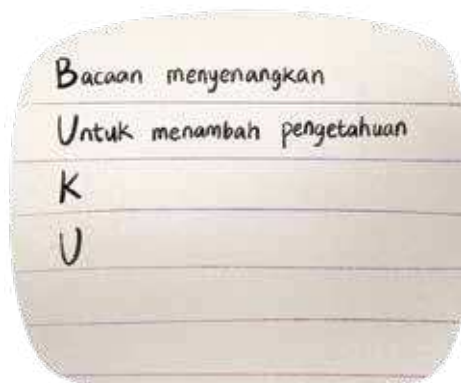 Bacaan menyenangkan
Untuk menambah pengetahuan
K
U